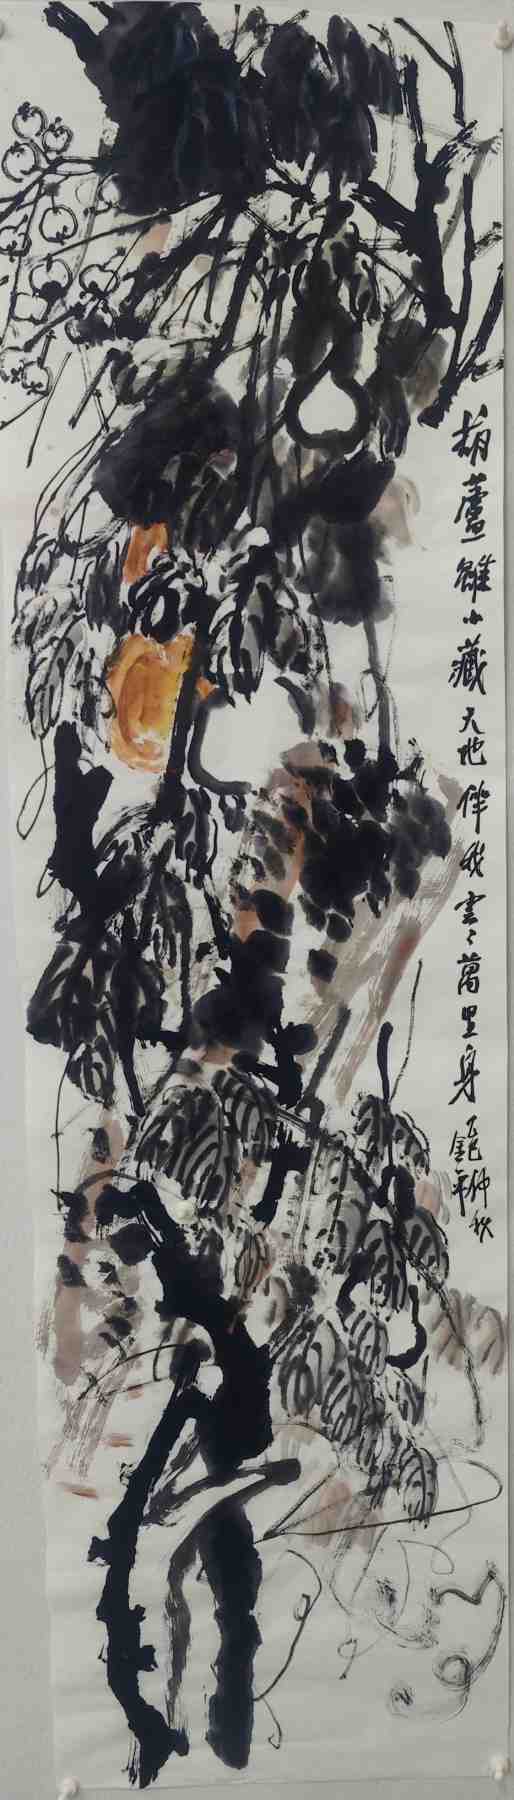 葫蘆雖小藏天地伴我雲〻萬里身
仲秋